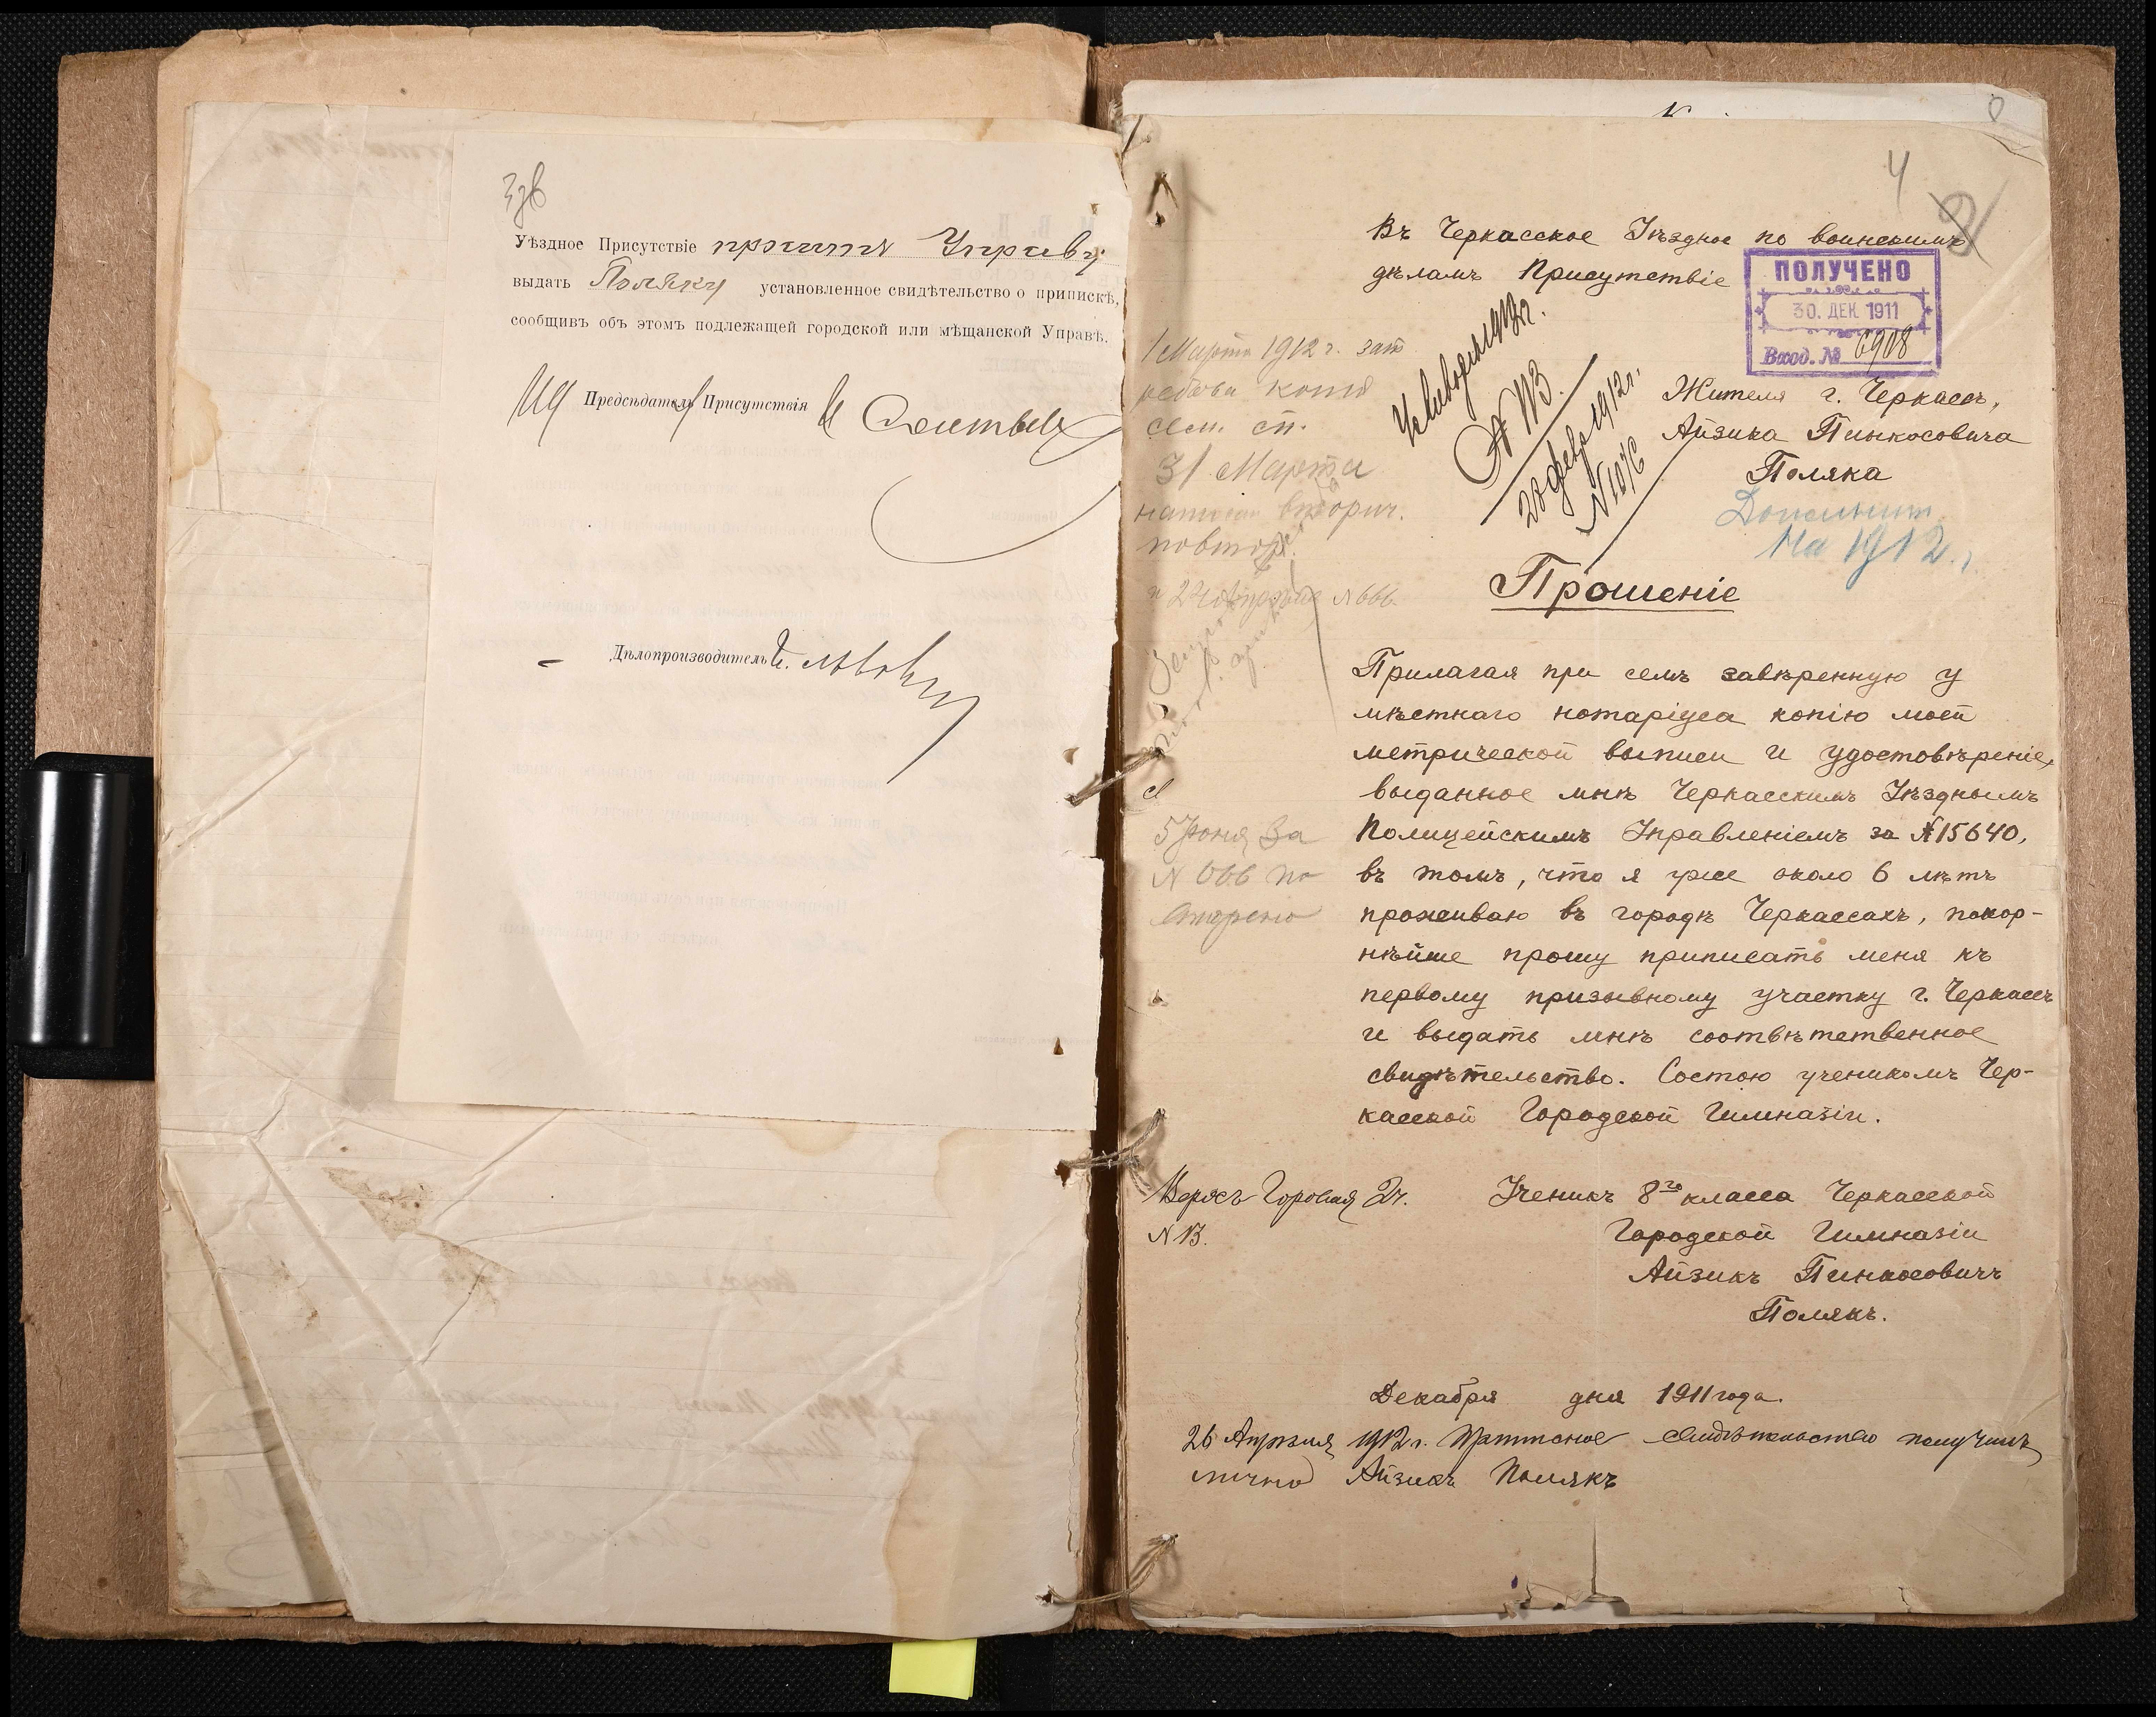 3зв
Уѣздное Присутствіе проситъ Управу
выдать Поляку установленное свидѣтельство о припискѣ,
сообщивъ объ этомъ подлежащей городской или мѣщанской Управѣ.
Предсѣдателя Присутствія
Дѣлопроизводитель
4
Въ Черкасское Уѣздное по воинскимъ
дѣламъ Присутствіе
ПОЛУЧЕНО
30. ДЕК. 1911
Вход. № 6908
Жителя г. Черкассъ,
Айзика Пинкосовича
Поляка
На 1912 г.
20 февр 1912 г.
N 1076
1 Марта 1912 г.
сем. сп.
31 Марта
вторич.
N 666.
Прошеніе
Прилагая при семъ завѣренную у
мѣстнаго нотаріуса копію моей
метрической выписи и удостовѣреніе,
выданное мнѣ Черкасскимъ Уѣзднымъ
Полицейскимъ Управленіемъ за №15640,
въ томъ, что я уже около 6 лѣтъ
проживаю въ городѣ Черкассахъ, покор-
нѣйше прошу приписать меня къ
первому призывному участку г. Черкассъ
и выдать мнѣ соотвѣтственное
свидѣтельство. Состою ученикомъ Чер-
касской Городской Гимназіи.
5 Іюня За
N 666 по
Горовая 2ч.
N 13.
Ученикъ 8го класса Черкасской
Городской Гимназіи
Айзикъ Пинкосовичъ
Полякъ.
Декабря дня 1911 года.
26 Апрѣля 1912 г. свидѣтельство получилъ
лично Айзикъ Полякъ